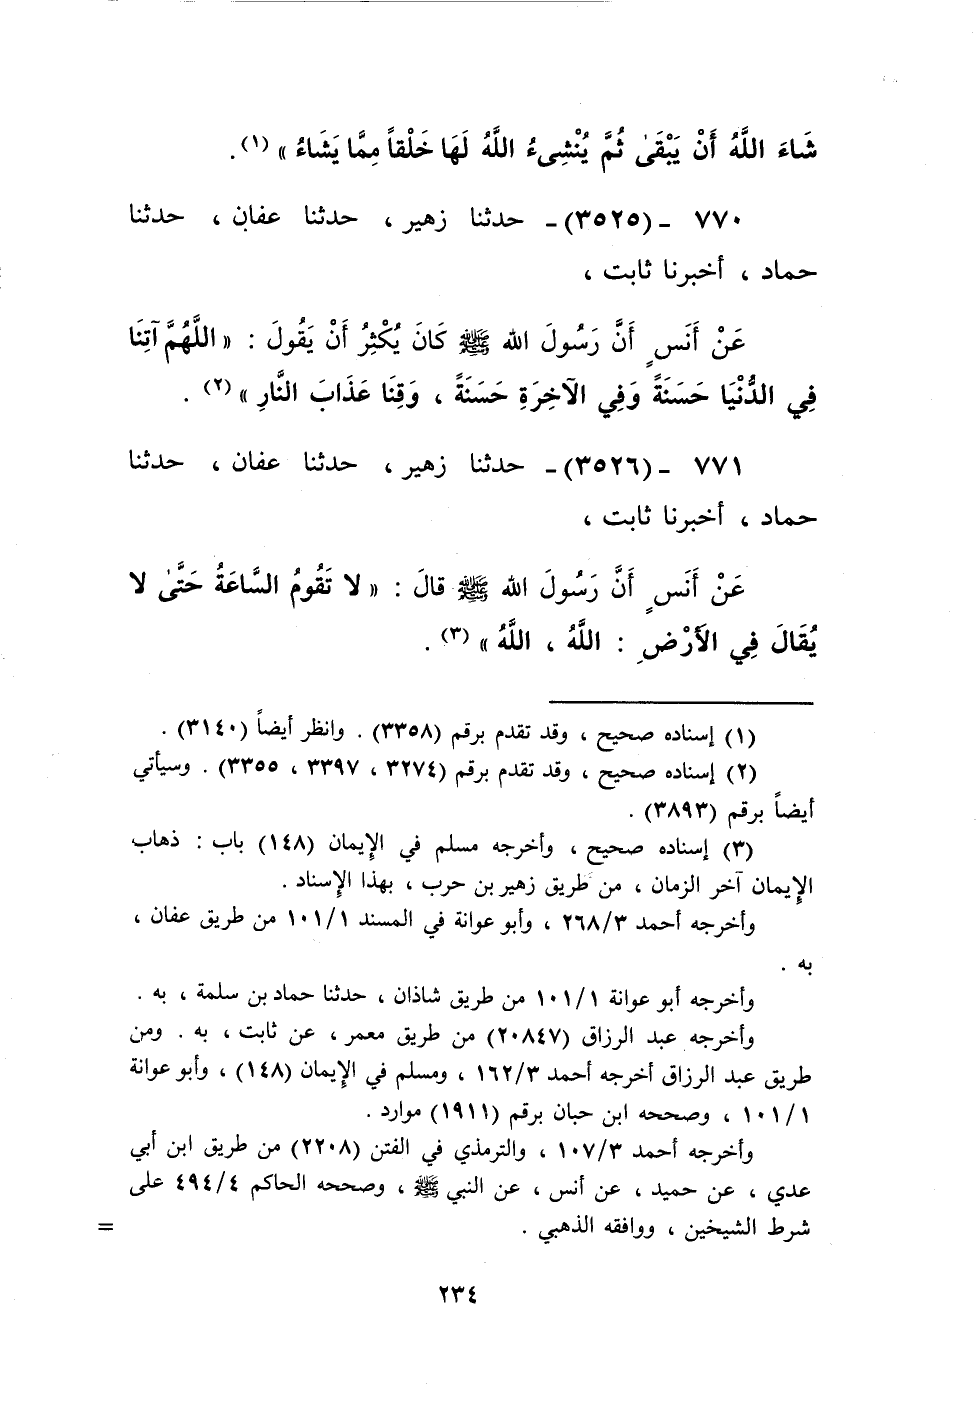 شَاءَ اللَّهُ أَنْ يَبْقَىٰ ثُمَّ يُنْشِىءُ اللَّهُ لَهَا خَلْقاً مِمَّا يَشَاءُ » (١).
٧٧٠ ـ (٣٥٢٥)ـ حدثنا زهير ، حدثنا عفان ، حدثنا
حماد ، أخبرنا ثابت ،
عَنْ أَنَسٍ أَنَّ رَسُولَ الله ﷺ كَانَ يُكْثِرُ أَنْ يَقُولَ : « اللَّهُمَّ آتِنَا
فِي الدُّنْيَا حَسَنَةً وَفِي الآخِرَةِ حَسَنَةً ، وَقِنَا عَذَابَ النَّارِ » (٢) .
٧٧١ ـ (٣٥٢٦)ـ حدثنا زهير ، حدثنا عفان ، حدثنا
حماد ، أخبرنا ثابت ،
عَنْ أَنَسٍ أَنَّ رَسُولَ الله ﷺ قالَ : « لا تَقُومُ السَّاعَةُ حَتَّىٰ لا
يُقَالَ فِي الأَرْضِ : اللَّهُ ، اللَّهُ » (٣) .
(١) إسناده صحيح ، وقد تقدم برقم (٣٣٥٨) . وانظر أيضاً (٣١٤٠) .
(٢) إسناده صحيح ، وقد تقدم برقم (٣٢٧٤ ، ٣٣٩٧ ، ٣٣٥٥) . وسيأتي
أيضاً برقم (٣٨٩٣) .
(٣) إسناده صحيح ، وأخرجه مسلم في الإيمان (١٤٨) باب : ذهاب
الإيمان آخر الزمان ، من طريق زهير بن حرب ، بهذا الإسناد .
وأخرجه أحمد ٢٦٨/٣ ، وأبو عوانة في المسند ١٠١/١ من طريق عفان ،
به .
وأخرجه أبو عوانة ١٠١/١ من طريق شاذان ، حدثنا حماد بن سلمة ، به .
وأخرجه عبد الرزاق (٢٠٨٤٧) من طريق معمر ، عن ثابت ، به . ومن
طريق عبد الرزاق أخرجه أحمد ١٦٢/٣ ، ومسلم في الإيمان (١٤٨) ، وأبو عوانة
١٠١/١ ، وصححه ابن حبان برقم (١٩١١) موارد .
وأخرجه أحمد ١٠٧/٣ ، والترمذي في الفتن (٢٢٠٨) من طريق ابن أبي
عدي ، عن حميد ، عن أنس ، عن النبي ﷺ ، وصححه الحاكم ٤٩٤/٤ على
شرط الشيخين ، ووافقه الذهبي . =
٢٣٤